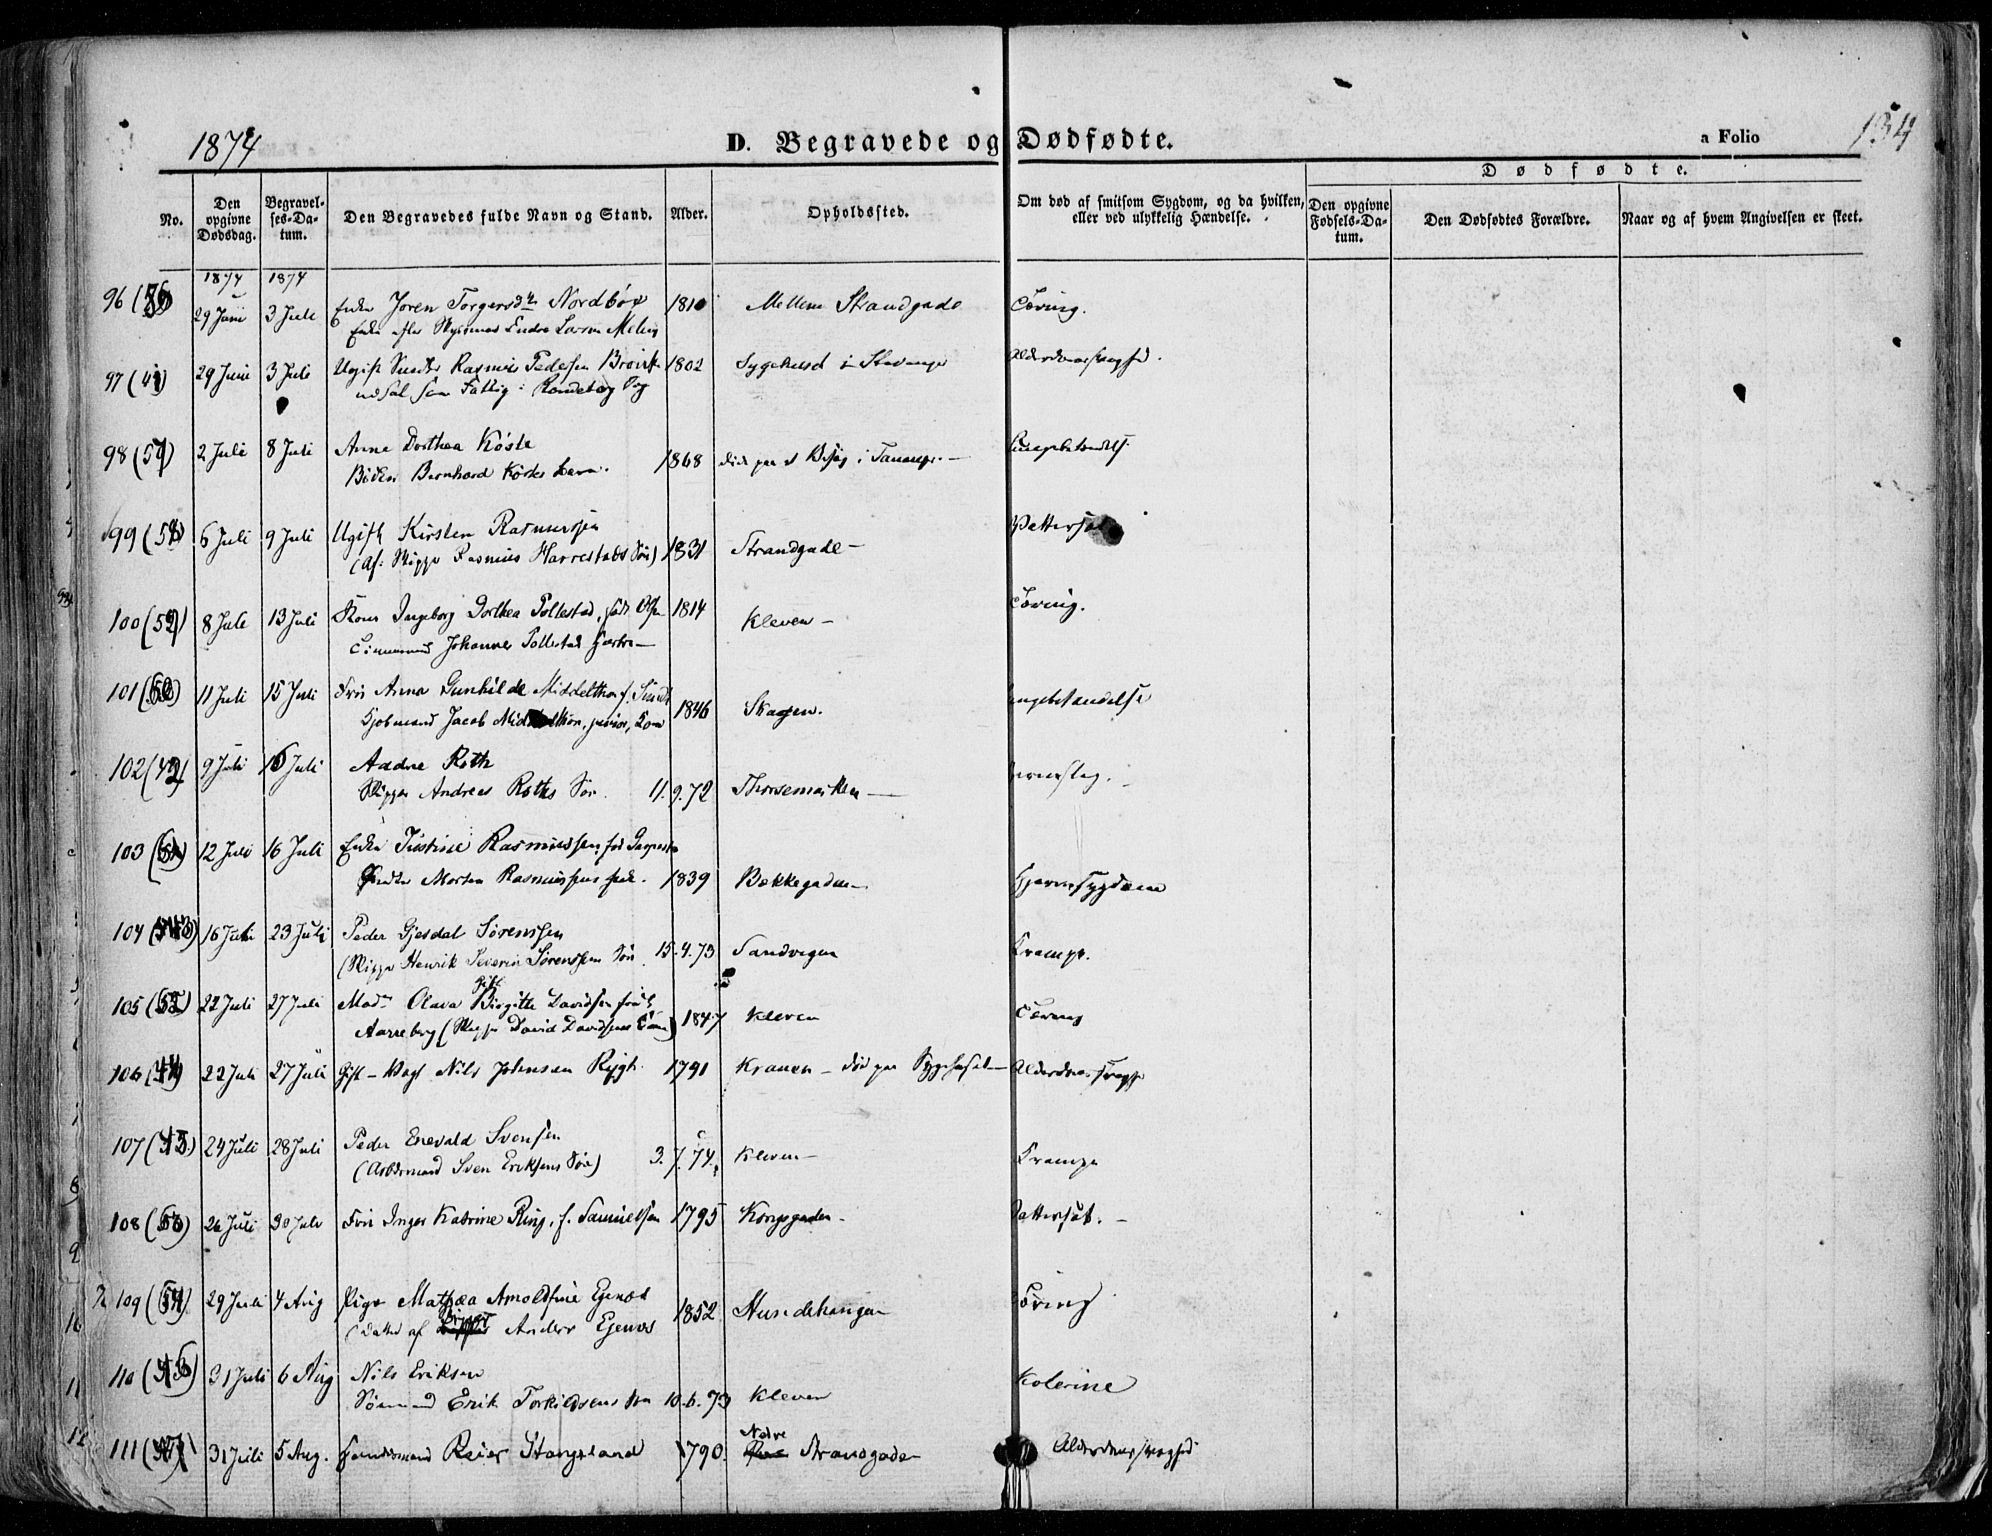 1874
D. Begravede og Dødfødte.
a Folio
134
No.
Den opgivne Dødsdag.
Begravelses-Datum.
Den Begravedes fulde Navn og Stand.
Alder.
Opholdssted.
Om død af smitsom Sygdom, og da hvilken, eller ved ulykkelig Hændelse.
Dødfødte.
Den opgivne Fødsels-Datum.
Den Dødfødtes Forældre.
Naar og af hvem Angivelsen er skeet.
1874 1874
96 29 Juni 3 Juli Enke Joren Torgersdtr Nordbøe 1810 Mellem Strandgade Tæring.
Enke efter Endre Larsen Meling
97 (41) 29 Juni 3 Juli Ugift Rasmus Pedersen 1802 Sygehuset i Stavanger Alderdomssvaghed.
som Fattig i
98 (57) 2 Juli 8 Juli Anne Dorthea Köste
Bernhard Köstes Barn. 1868 død paa et Besøg i Tananger Lungebetændelse
99 (58) 6 Juli 9 Juli Ugift Kirsten Rasmussen Vattersot
(Af: Skipper Rasmus Harrestads Søn) 1831 Strandgade
100 (59) 8 Juli 13 Juli Kone Ingeborg Dorthea Pollestad, født Olsen 1814 Kleven Tæring.
Tømmermand Johannes Pollestad Hustru
101 (60) 11 Juli 15 Juli Fru Anna Gunhilde Middelthon f. Sundt 1846 Skagen. Lungebetændelse
Kjøbmand Jacob Middelthon, junior, Kone
102 (42) 9 Juli 16 Juli Andre Roth
Skipper Andreas Roths Søn. 11.9.72
103 (61) 12 Juli 16 Juli Enke Justine Rasmussen, født
Morten Rasmussens 1839 Bækkegaden Hjertesygdom
104 (43) 16 Juli 23 Juli Peder Gjesdal Sörenssen
(Skipper Henrik Severin Sörenssens Søn 15.4.73 Sandvigen Krampe.
105 (62) 22 Juli 27 Juli Mad. Gift Olava Birgitte Davidsen født
Aarreberg (Skipper David Davidsens Kone) 1847 Kleven Tæring
106 (44) 22 Juli 27 Juli Gift Nils Johnsen Rygh. 1791 Kranen - død paa Sygehuset Alderdomssvaghed
107 (45) 24 Juli 28 Juli Peder Enevald Svensen
(Arbeidsmand Sven Eriksens Søn) 3.7.74. Kleven Krampe
108 (63) 26 Juli 30 Juli Fru Inger Katrine Ring, f. Samuelsen 1795 Kongsgaden Vattersot.
109 (64) 29 Juli 4 Aug Pige Mathæa Arnoldine Egenæs
(Datter af Anders Egenæs 1852 Hundehaugen Tæring
110 (46) 31 Juli 6 Aug Nils Eriksen
Sømand Erik Torkildsens Søn 10.6.73 Kleven Kolerine
111 (47) 31 Juli 5 Aug. Handelsmand Reier Stangeland 1790. Nedre Strandgade Alderdomssvaghed